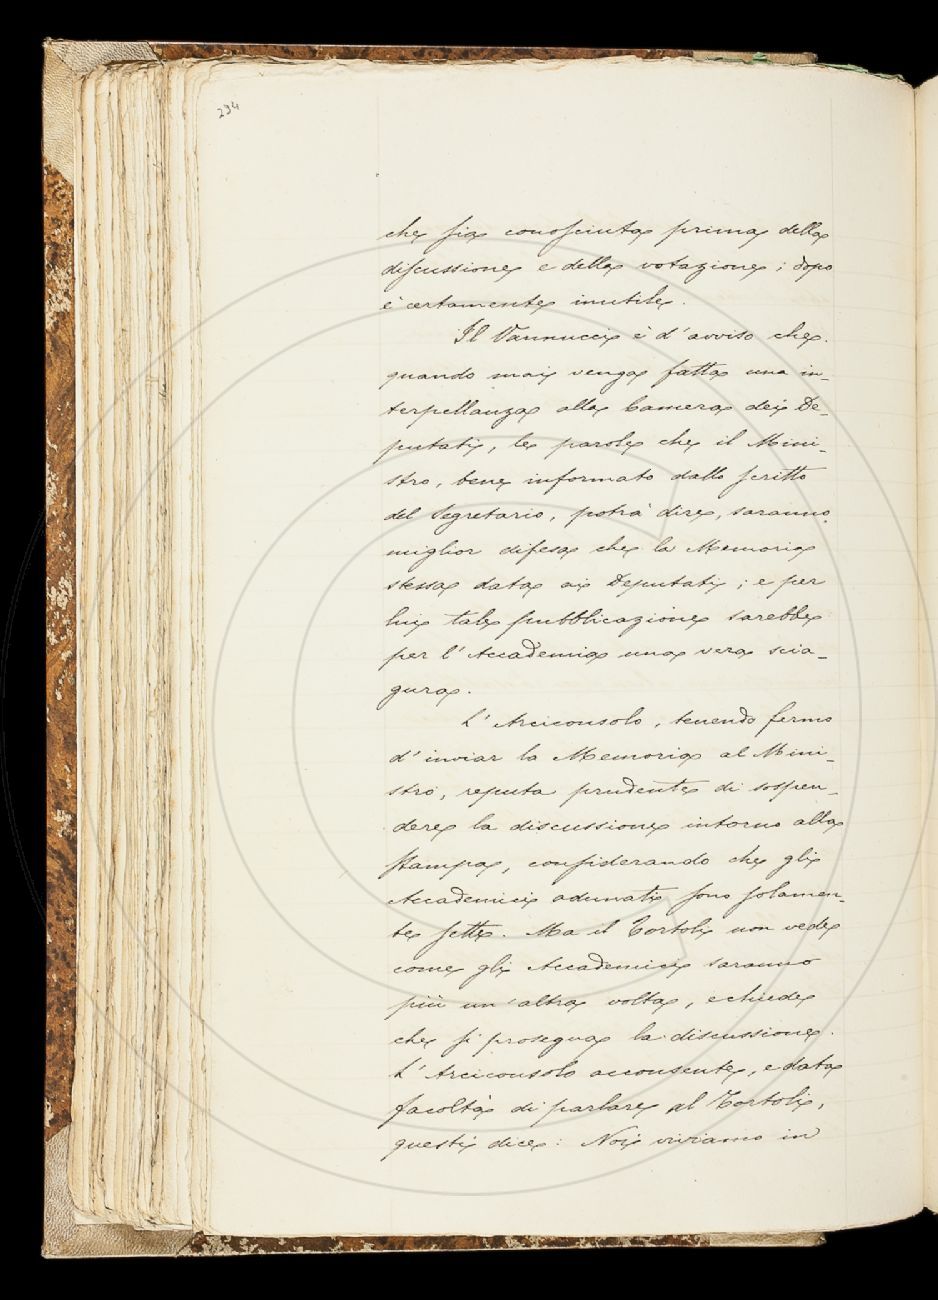 294
che sia conosciuta prima della
discussione e della votazione; dopo
è certamente inutile.
Il Vannucci è d'avviso che
quando mai venga fatta una in-
terpellanza alla Camera dei De-
putati, le parole che il Mini-
stro, bene informato dallo scritto
del Segretario, potrà dire, saranno
miglior difesa che la Memoria
stessa data ai Deputati; e per
lui tale pubblicazione sarebbe
per l'Accademia una vera scia-
gura.
L'Arciconsolo, tenendo fermo
d'inviar la Memoria al Mini-
stro, reputa prudente di sospen-
dere la discussione intorno alla
stampa, considerando che gli
Accademici adunati sono solamen-
te sette. Ma il Tortoli non vede
come gli Accademici saranno
più un'altra volta, e chiede
che si prosegua la discussione.
L'Arciconsolo acconsente, e data
facoltà di parlare al Tortoli,
questi dice: Noi viviamo in